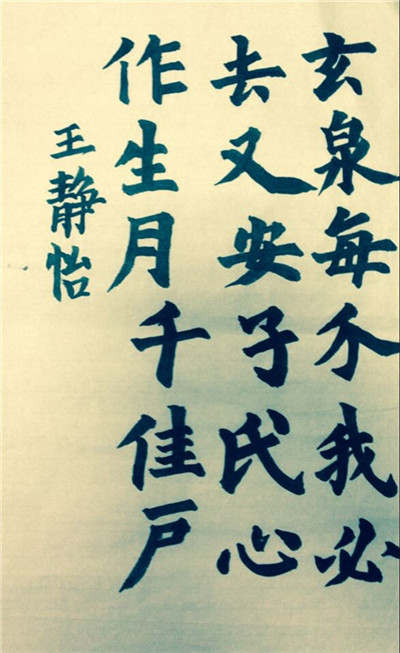 玄泉每不我必
去又安子氏心
作生月千佳戶
王静怡